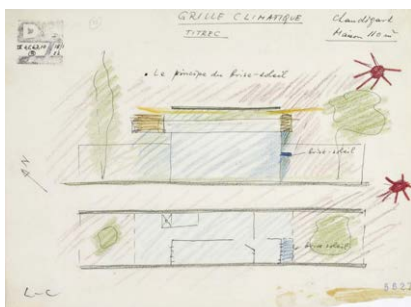 GRILLE CLIMATIQUE
TITREC
Chandigarh
Maison 110 m²
• Le principe des brise-soleil
brise-soleil
N
brise-soleil
L-C